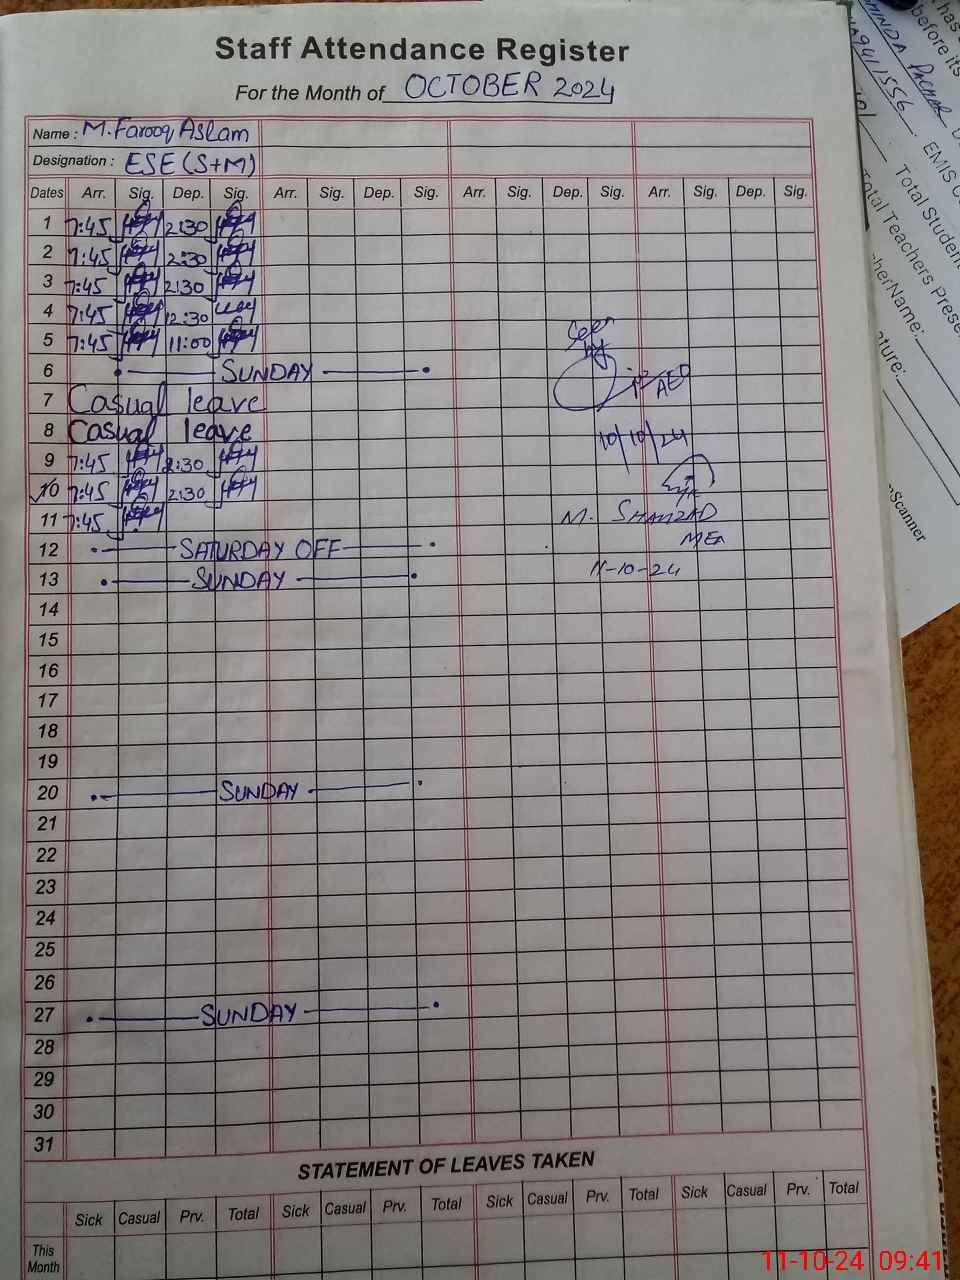 Staff Attendance Register
For the Month of OCTOBER 2024
Name : M. Farooq Aslam
Designation : ESE (S+M)
Dates Arr. Sig. Dep. Sig. Arr. Sig. Dep. Sig. Arr. Sig. Dep. Sig. Arr. Sig. Dep. Sig.
1 7:45 2:30
2 7:45 2:30
3 7:45 2:30
4 7:45 12:30
5 7:45 11:00
6 SUNDAY
7 Casual leave
8 Casual leave
9 7:45 2:30
10 7:45 2:30
11 7:45
12 SATURDAY OFF
13 SUNDAY
14
15
16
17
18
19
20 SUNDAY
21
22
23
24
25
26
27 SUNDAY
28
29
30
31
Seen
by
AEO
10/10/24
M. SHAHZAD
MEA
11-10-24
STATEMENT OF LEAVES TAKEN
Sick Casual Prv. Total Sick Casual Prv. Total Sick Casual Prv. Total Sick Casual Prv. Total
This
Month
has
before its
EMIS
Total Student
Total Teachers Prese
herName:
ature:
Scanner
11-10-24 09:41